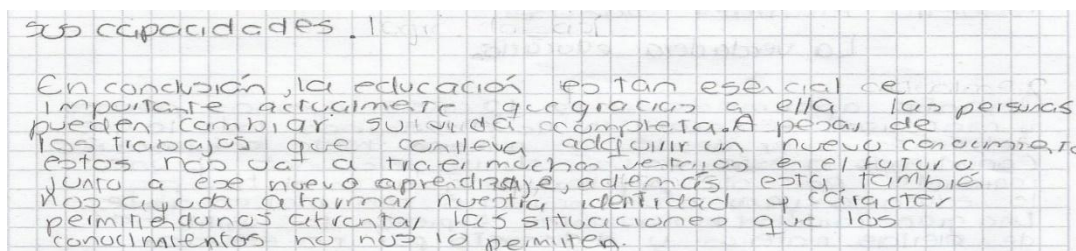 sus capacidades.
En conclusión, la educación es tan esencial e
importante actualmente que gracias a ella las personas
pueden cambiar su vida completa. A pesar de
los trabajos que conlleva adquirir un nuevo conocimiento
estos nos va a traer muchas ventajas en el futuro
junto a ese nuevo aprendizaje, además esta también
nos ayuda a formar nuestra identidad y carácter
permitiendonos afrontar las situaciones que los
conocimientos no nos lo permiten.